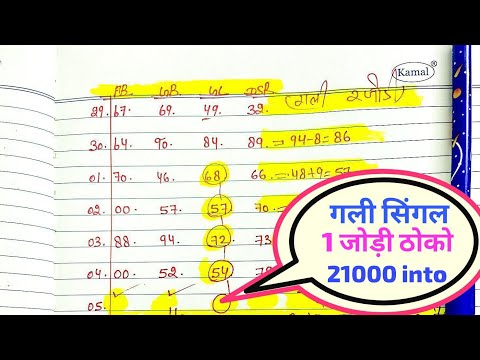 Kamal®
FB. GB. GL DSR.
29. 67. 69. 49. 32. (गली
30. 64. 90. 84. 89. = 94-8= 86
01. 70 46. 68 66. = 48+9= 57
02. 00 57. 57 70
03. 88 94. 72 73
04. 00 52. 54
05.
गली सिंगल
1 जोड़ी ठोको
21000 into